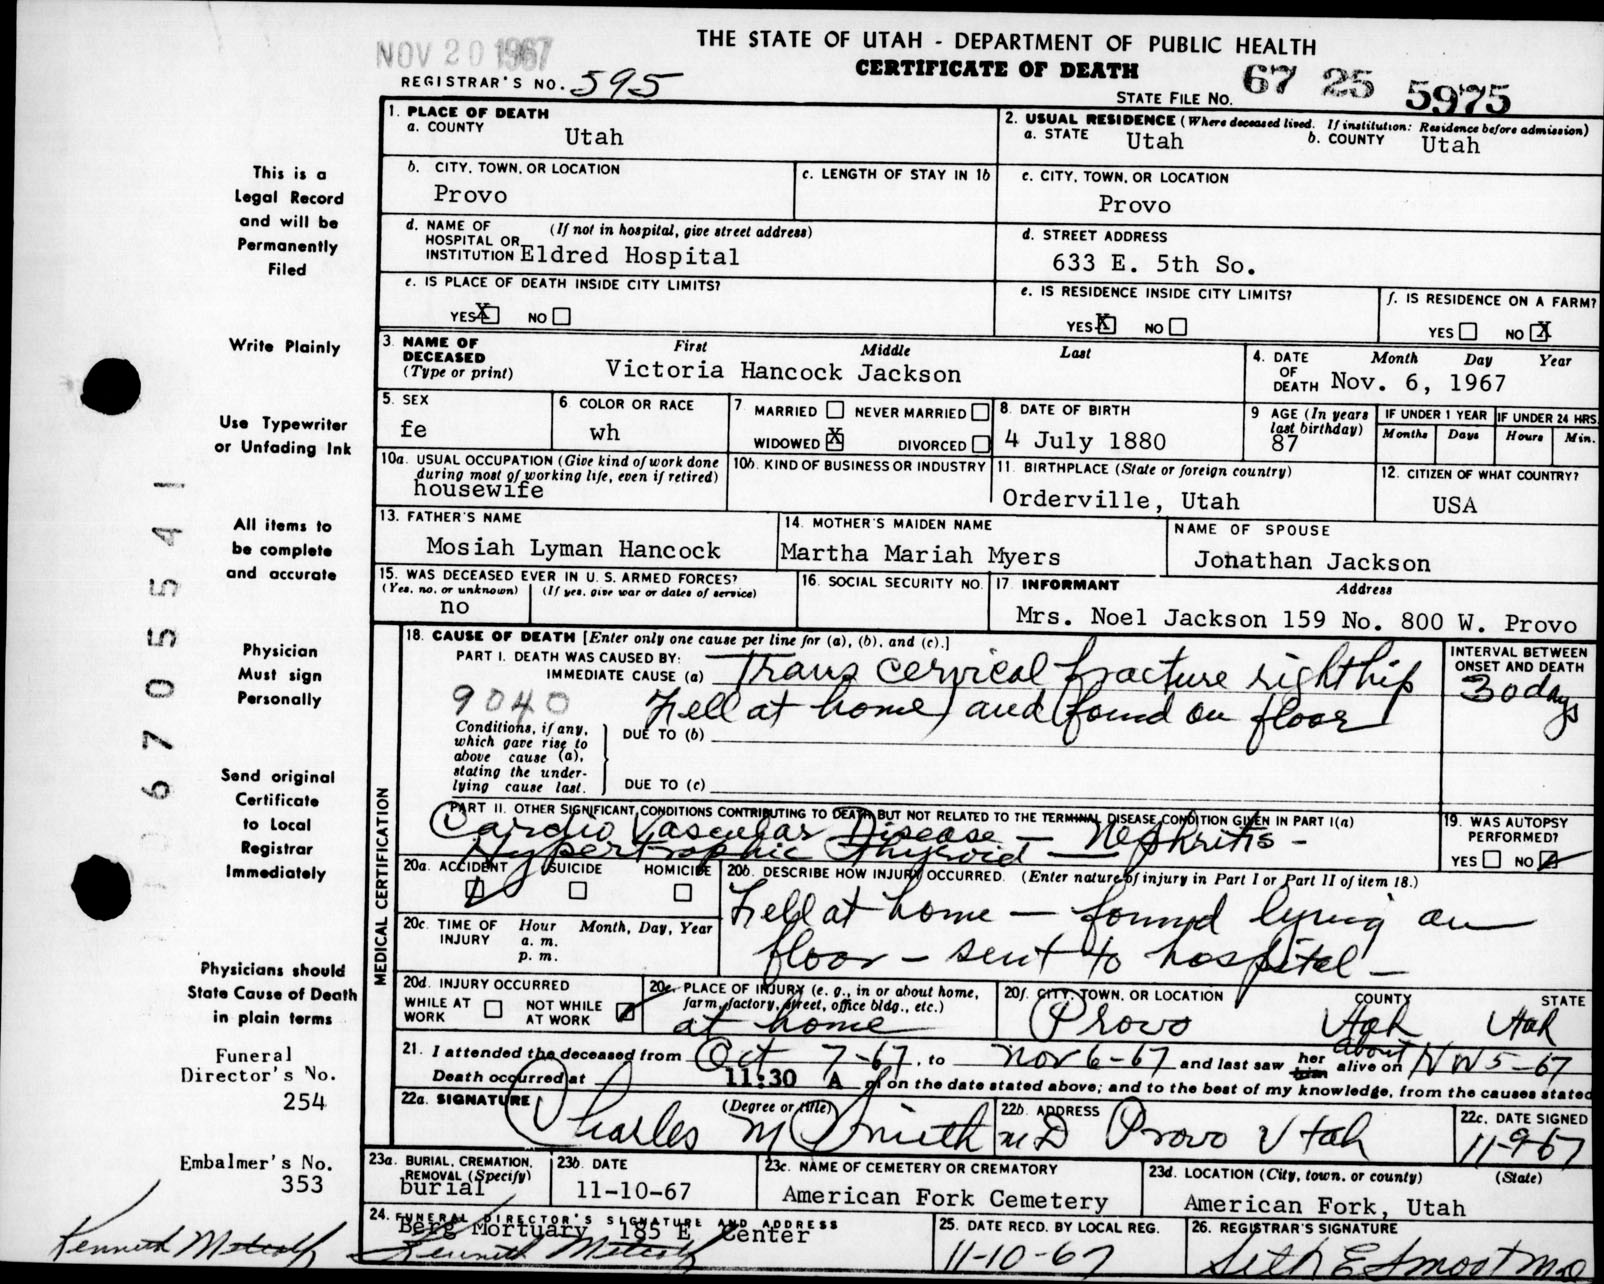 NOV 20 1967
THE STATE OF UTAH - DEPARTMENT OF PUBLIC HEALTH
CERTIFICATE OF DEATH
REGISTRAR'S NO. 595
STATE FILE NO. 67 25 5975
This is a
Legal Record
and will be
Permanently
Filed
Write Plainly
Use Typewriter
or Unfading Ink
All items to
be complete
and accurate
Physician
Must sign
Personally
Send original
Certificate
to Local
Registrar
Immediately
Physicians should
State Cause of Death
in plain terms
Funeral
Director's No.
254
Embalmer's No.
353
Kenneth Metcalf
06705541
1. PLACE OF DEATH
a. COUNTY Utah
2. USUAL RESIDENCE (Where deceased lived. If institution: Residence before admission)
a. STATE Utah b. COUNTY Utah
b. CITY, TOWN, OR LOCATION
Provo
c. LENGTH OF STAY IN 1b
c. CITY, TOWN, OR LOCATION
Provo
d. NAME OF (If not in hospital, give street address)
HOSPITAL OR
INSTITUTION Eldred Hospital
d. STREET ADDRESS
633 E. 5th So.
e. IS PLACE OF DEATH INSIDE CITY LIMITS?
YES X NO
e. IS RESIDENCE INSIDE CITY LIMITS?
YES X NO
f. IS RESIDENCE ON A FARM?
YES NO X
3. NAME OF First Middle Last
DECEASED
(Type or print) Victoria Hancock Jackson
4. DATE Month Day Year
OF
DEATH Nov. 6, 1967
5. SEX
fe
6. COLOR OR RACE
wh
7. MARRIED NEVER MARRIED
WIDOWED X DIVORCED
8. DATE OF BIRTH
4 July 1880
9 AGE (In years
last birthday)
87
IF UNDER 1 YEAR IF UNDER 24 HRS.
Months Days Hours Min.
10a. USUAL OCCUPATION (Give kind of work done
during most of working life, even if retired)
housewife
10b. KIND OF BUSINESS OR INDUSTRY
11. BIRTHPLACE (State or foreign country)
Orderville, Utah
12. CITIZEN OF WHAT COUNTRY?
USA
13. FATHER'S NAME
Mosiah Lyman Hancock
14. MOTHER'S MAIDEN NAME
Martha Mariah Myers
NAME OF SPOUSE
Jonathan Jackson
15. WAS DECEASED EVER IN U. S. ARMED FORCES?
(Yes, no, or unknown) (If yes, give war or dates of service)
no
16. SOCIAL SECURITY NO.
17. INFORMANT Address
Mrs. Noel Jackson 159 No. 800 W. Provo
MEDICAL CERTIFICATION
18. CAUSE OF DEATH [Enter only one cause per line for (a), (b), and (c).]
PART I. DEATH WAS CAUSED BY:
IMMEDIATE CAUSE (a) Trans cervical fracture right hip
INTERVAL BETWEEN
ONSET AND DEATH
30 days
9040
Fell at home and found on floor
Conditions, if any,
which gave rise to
above cause (a),
stating the under-
lying cause last.
DUE TO (b)
DUE TO (c)
PART II. OTHER SIGNIFICANT CONDITIONS CONTRIBUTING TO DEATH BUT NOT RELATED TO THE TERMINAL DISEASE CONDITION GIVEN IN PART I(a)
Cardio Vascular Disease — Nephritis -
Hypertrophic Thyroid —
19. WAS AUTOPSY
PERFORMED?
YES NO
20a. ACCIDENT SUICIDE HOMICIDE
20b. DESCRIBE HOW INJURY OCCURRED. (Enter nature of injury in Part I or Part II of item 18.)
Fell at home — found lying on
floor - sent to hospital -
20c. TIME OF Hour Month, Day, Year
INJURY a. m.
p. m.
20d. INJURY OCCURRED
WHILE AT NOT WHILE
WORK AT WORK
20e. PLACE OF INJURY (e. g., in or about home,
farm, factory, street, office bldg., etc.)
at home
20f. CITY, TOWN, OR LOCATION COUNTY STATE
Provo Utah Utah
21. I attended the deceased from Oct 7-67, to Nov 6-67 and last saw her him alive on about Nov 5-67
Death occurred at 11:30 A m on the date stated above; and to the best of my knowledge, from the causes stated
22a. SIGNATURE (Degree or title)
Charles M Smith MD
22b. ADDRESS
Provo Utah
22c. DATE SIGNED
11-9-67
23a. BURIAL, CREMATION,
REMOVAL (Specify)
burial
23b. DATE
11-10-67
23c. NAME OF CEMETERY OR CREMATORY
American Fork Cemetery
23d. LOCATION (City, town, or county) (State)
American Fork, Utah
24. FUNERAL DIRECTOR'S SIGNATURE AND ADDRESS
Berg Mortuary 185 E Center
Kenneth Metcalf
25. DATE RECD. BY LOCAL REG.
11-10-67
26. REGISTRAR'S SIGNATURE
Seth E Smoot M.D.